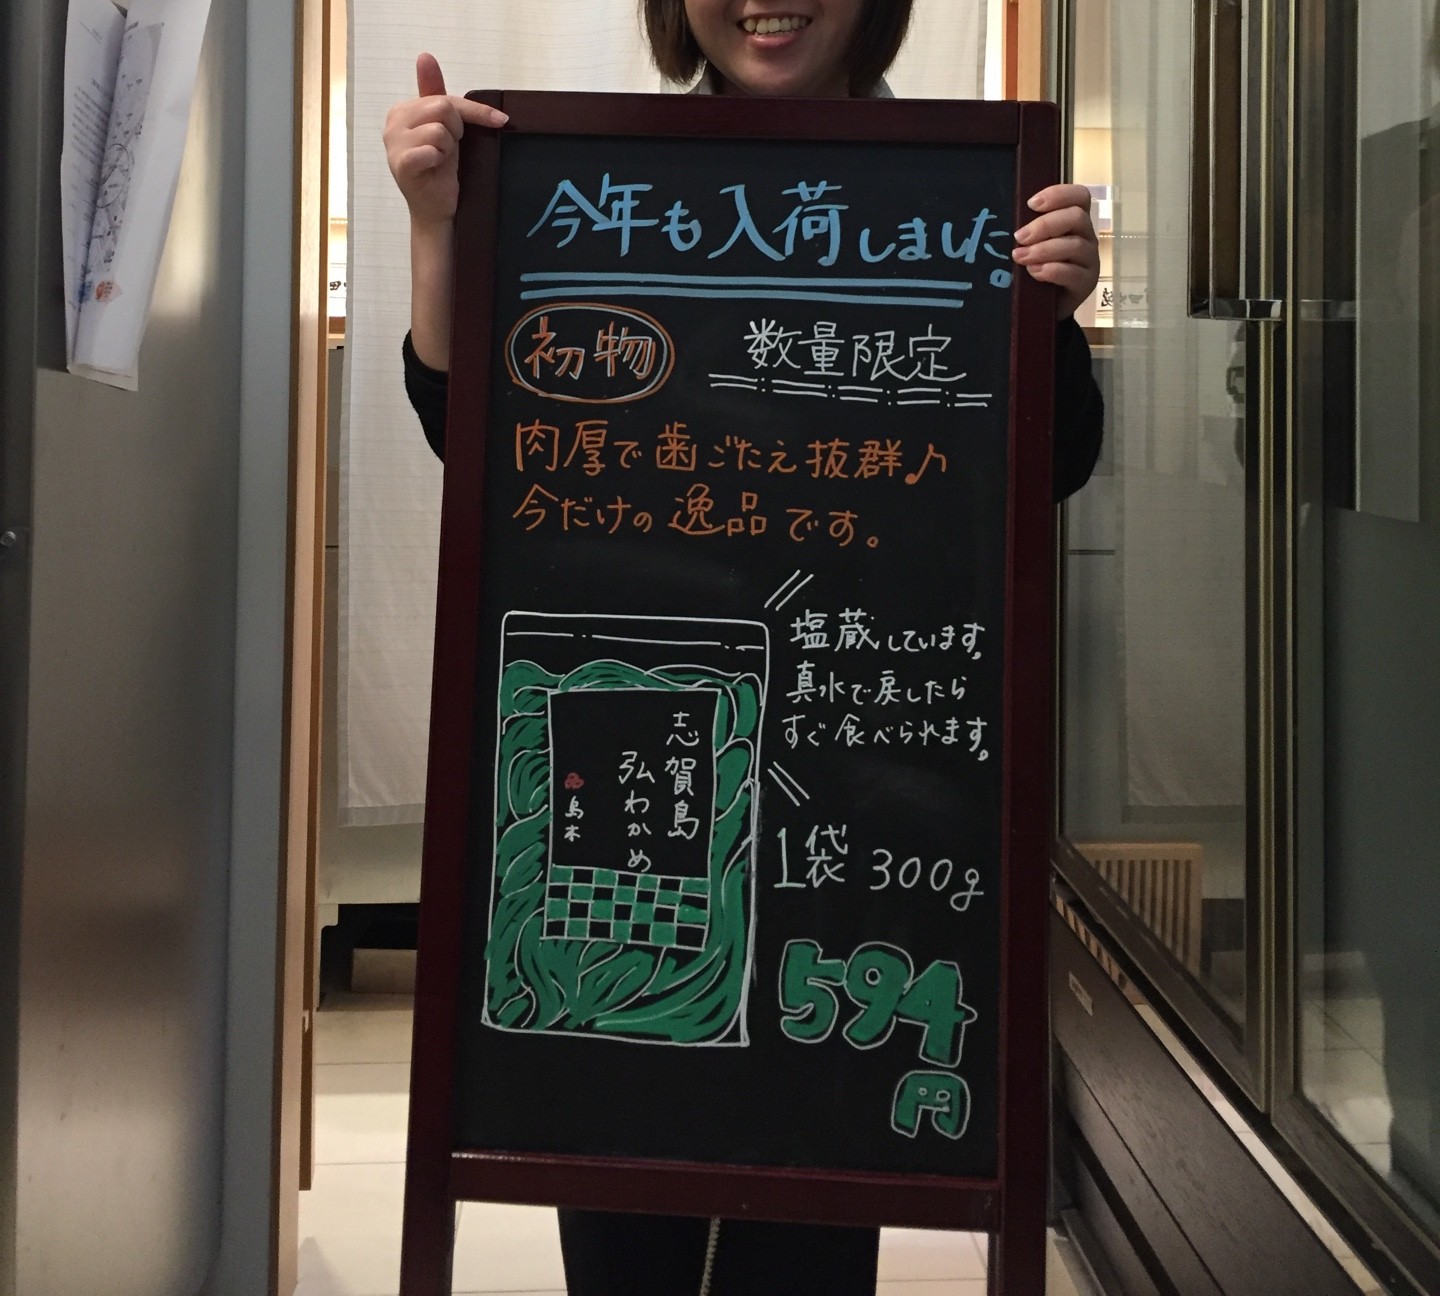 今年も入荷しました。
初物
数量限定
肉厚で歯ごたえ抜群♪
今だけの逸品です。
塩蔵しています。
真水で戻したら
すぐ食べられます。
志賀島
弘わかめ
島本
1袋 300g
594
円